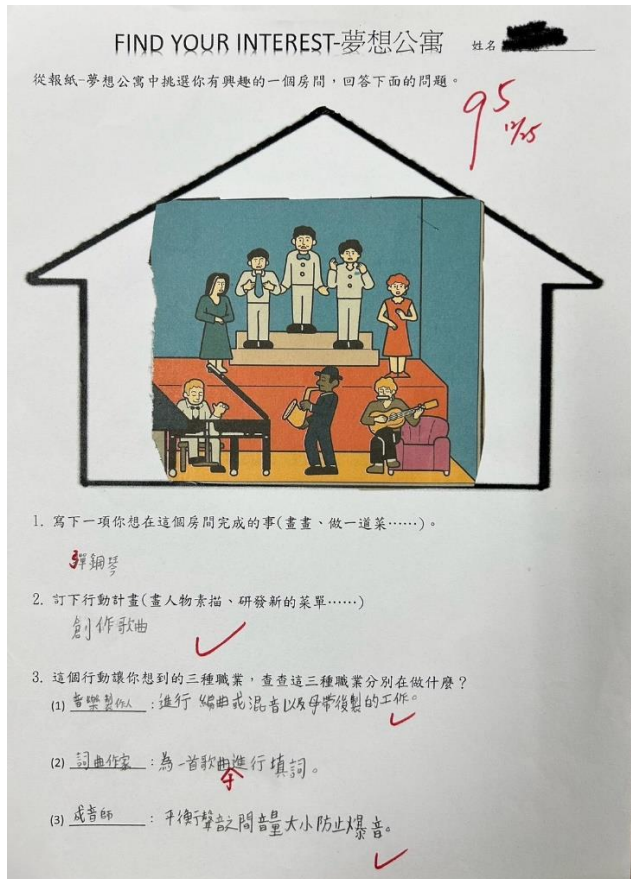 FIND YOUR INTEREST-夢想公寓 姓名
從報紙-夢想公寓中挑選你有興趣的一個房間，回答下面的問題。
95
12/25
1. 寫下一項你想在這個房間完成的事(畫畫、做一道菜……)。
彈鋼琴
2. 訂下行動計畫(畫人物素描、研發新的菜單……)
創作歌曲
3. 這個行動讓你想到的三種職業，查查這三種職業分別在做什麼？
(1) 音樂製作人：進行編曲或混音以及母帶後製的工作。
(2) 詞曲作家：為一首歌曲進行填詞。
(3) 成音師：平衡聲音之間音量大小防止爆音。